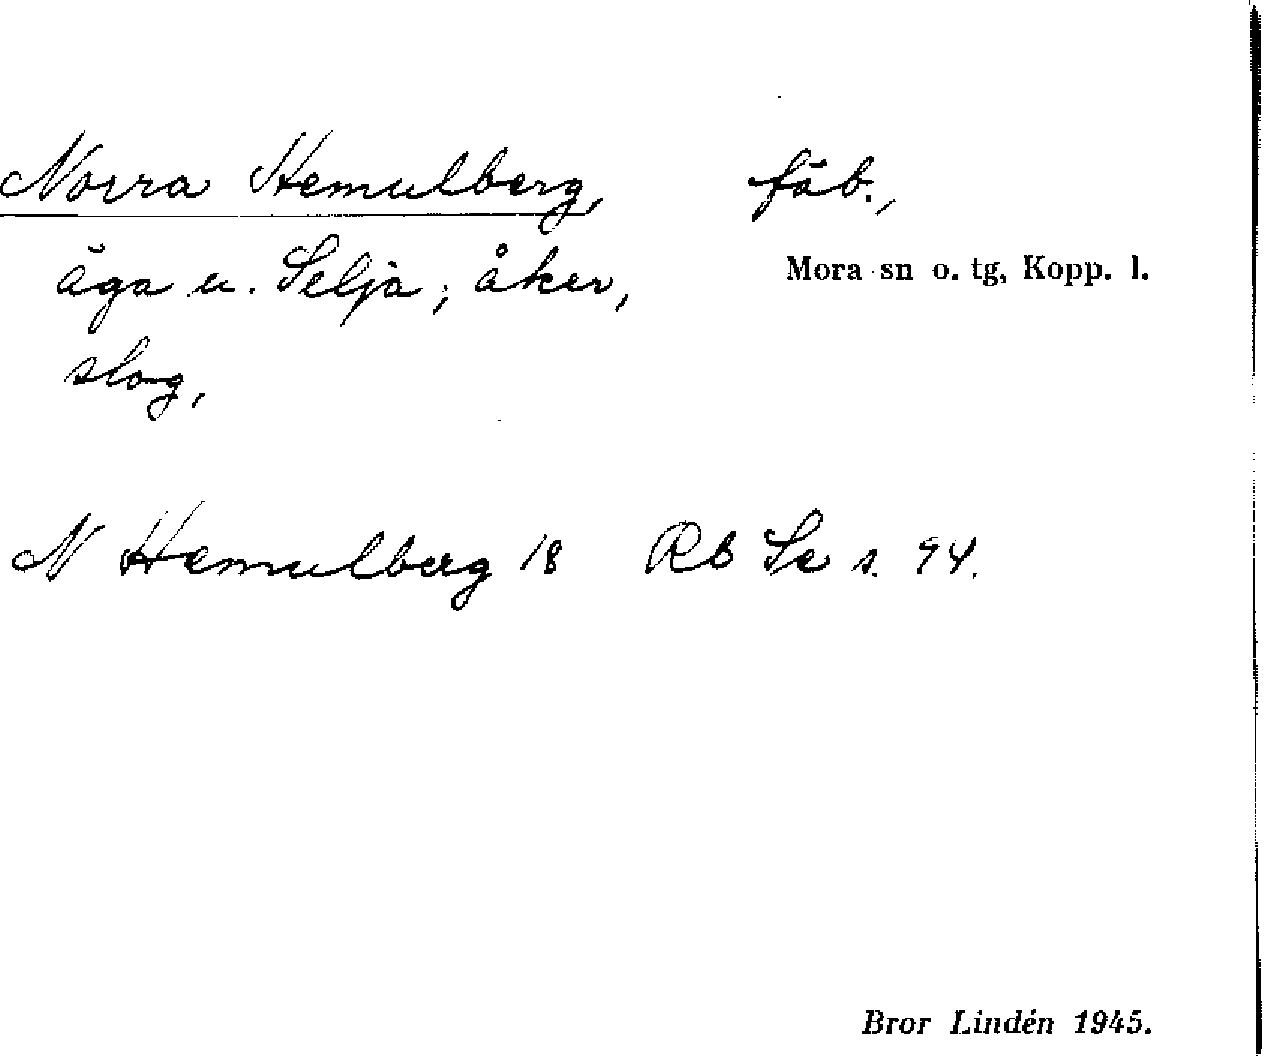 Norra Hemulberg, fäb.,
Mora sn o. tg, Kopp. l.
äga u. Selja; åker,
slog,
N Hemulberg 18 Rb Se s. 94.
Bror Lindén 1945.